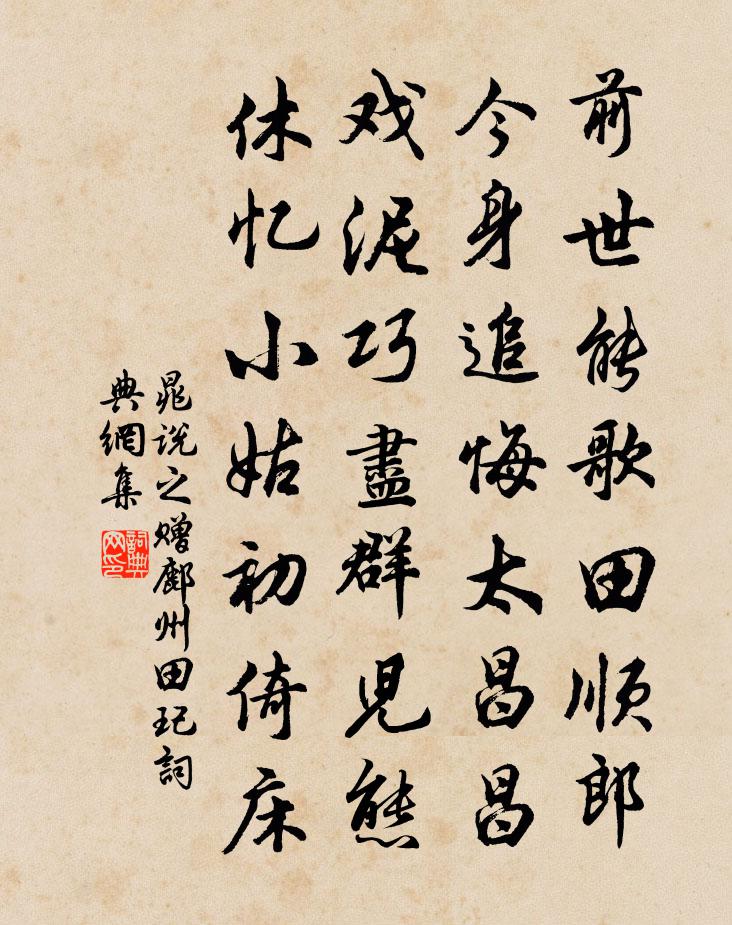 前世能歌田顺郎
今身追悔太昌昌
戏泥巧盡群児態
休忆小姑初倚床
晁说之赠鄜州田玘詞
典網集
詞典
网印